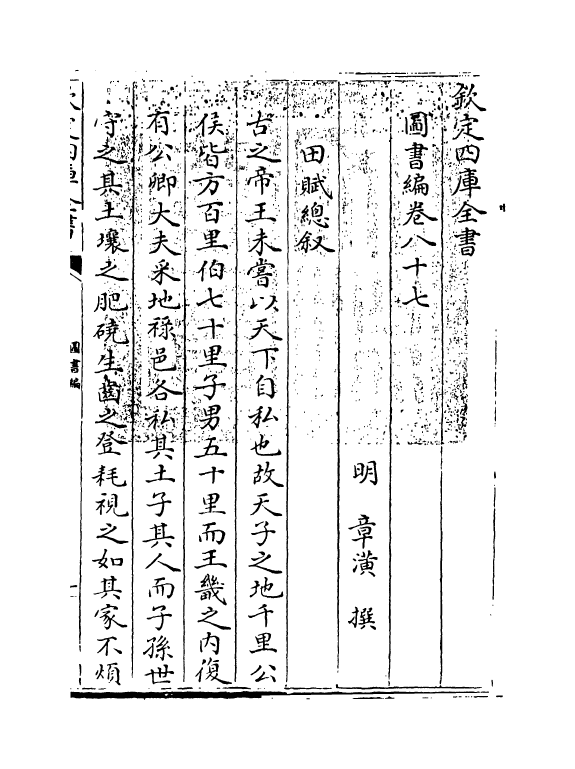 欽定四庫全書
圖書編卷八十七
明 章潢 撰
田賦總叙
古之帝王未嘗以天下自私也故天子之地千里公
侯皆方百里伯七十里子男五十里而王畿之内復
有公卿大夫采地祿邑各私其土子其人而子孫世
守之其土壤之肥磽生齒之登耗視之如其家不煩
欽定四庫全書
圖書編
一